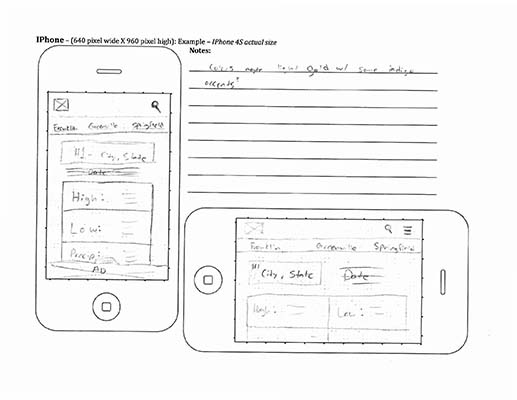 IPhone – (640 pixel wide X 960 pixel high): Example – IPhone 4S actual size
Notes:
light gold w/ some indigo
accents
Franklin Greenville Springfield
H1 - City, State
Date
High:
Low:
Precip:
AD
Franklin Greenville Springfield
H1 City, State Date
High: Low: